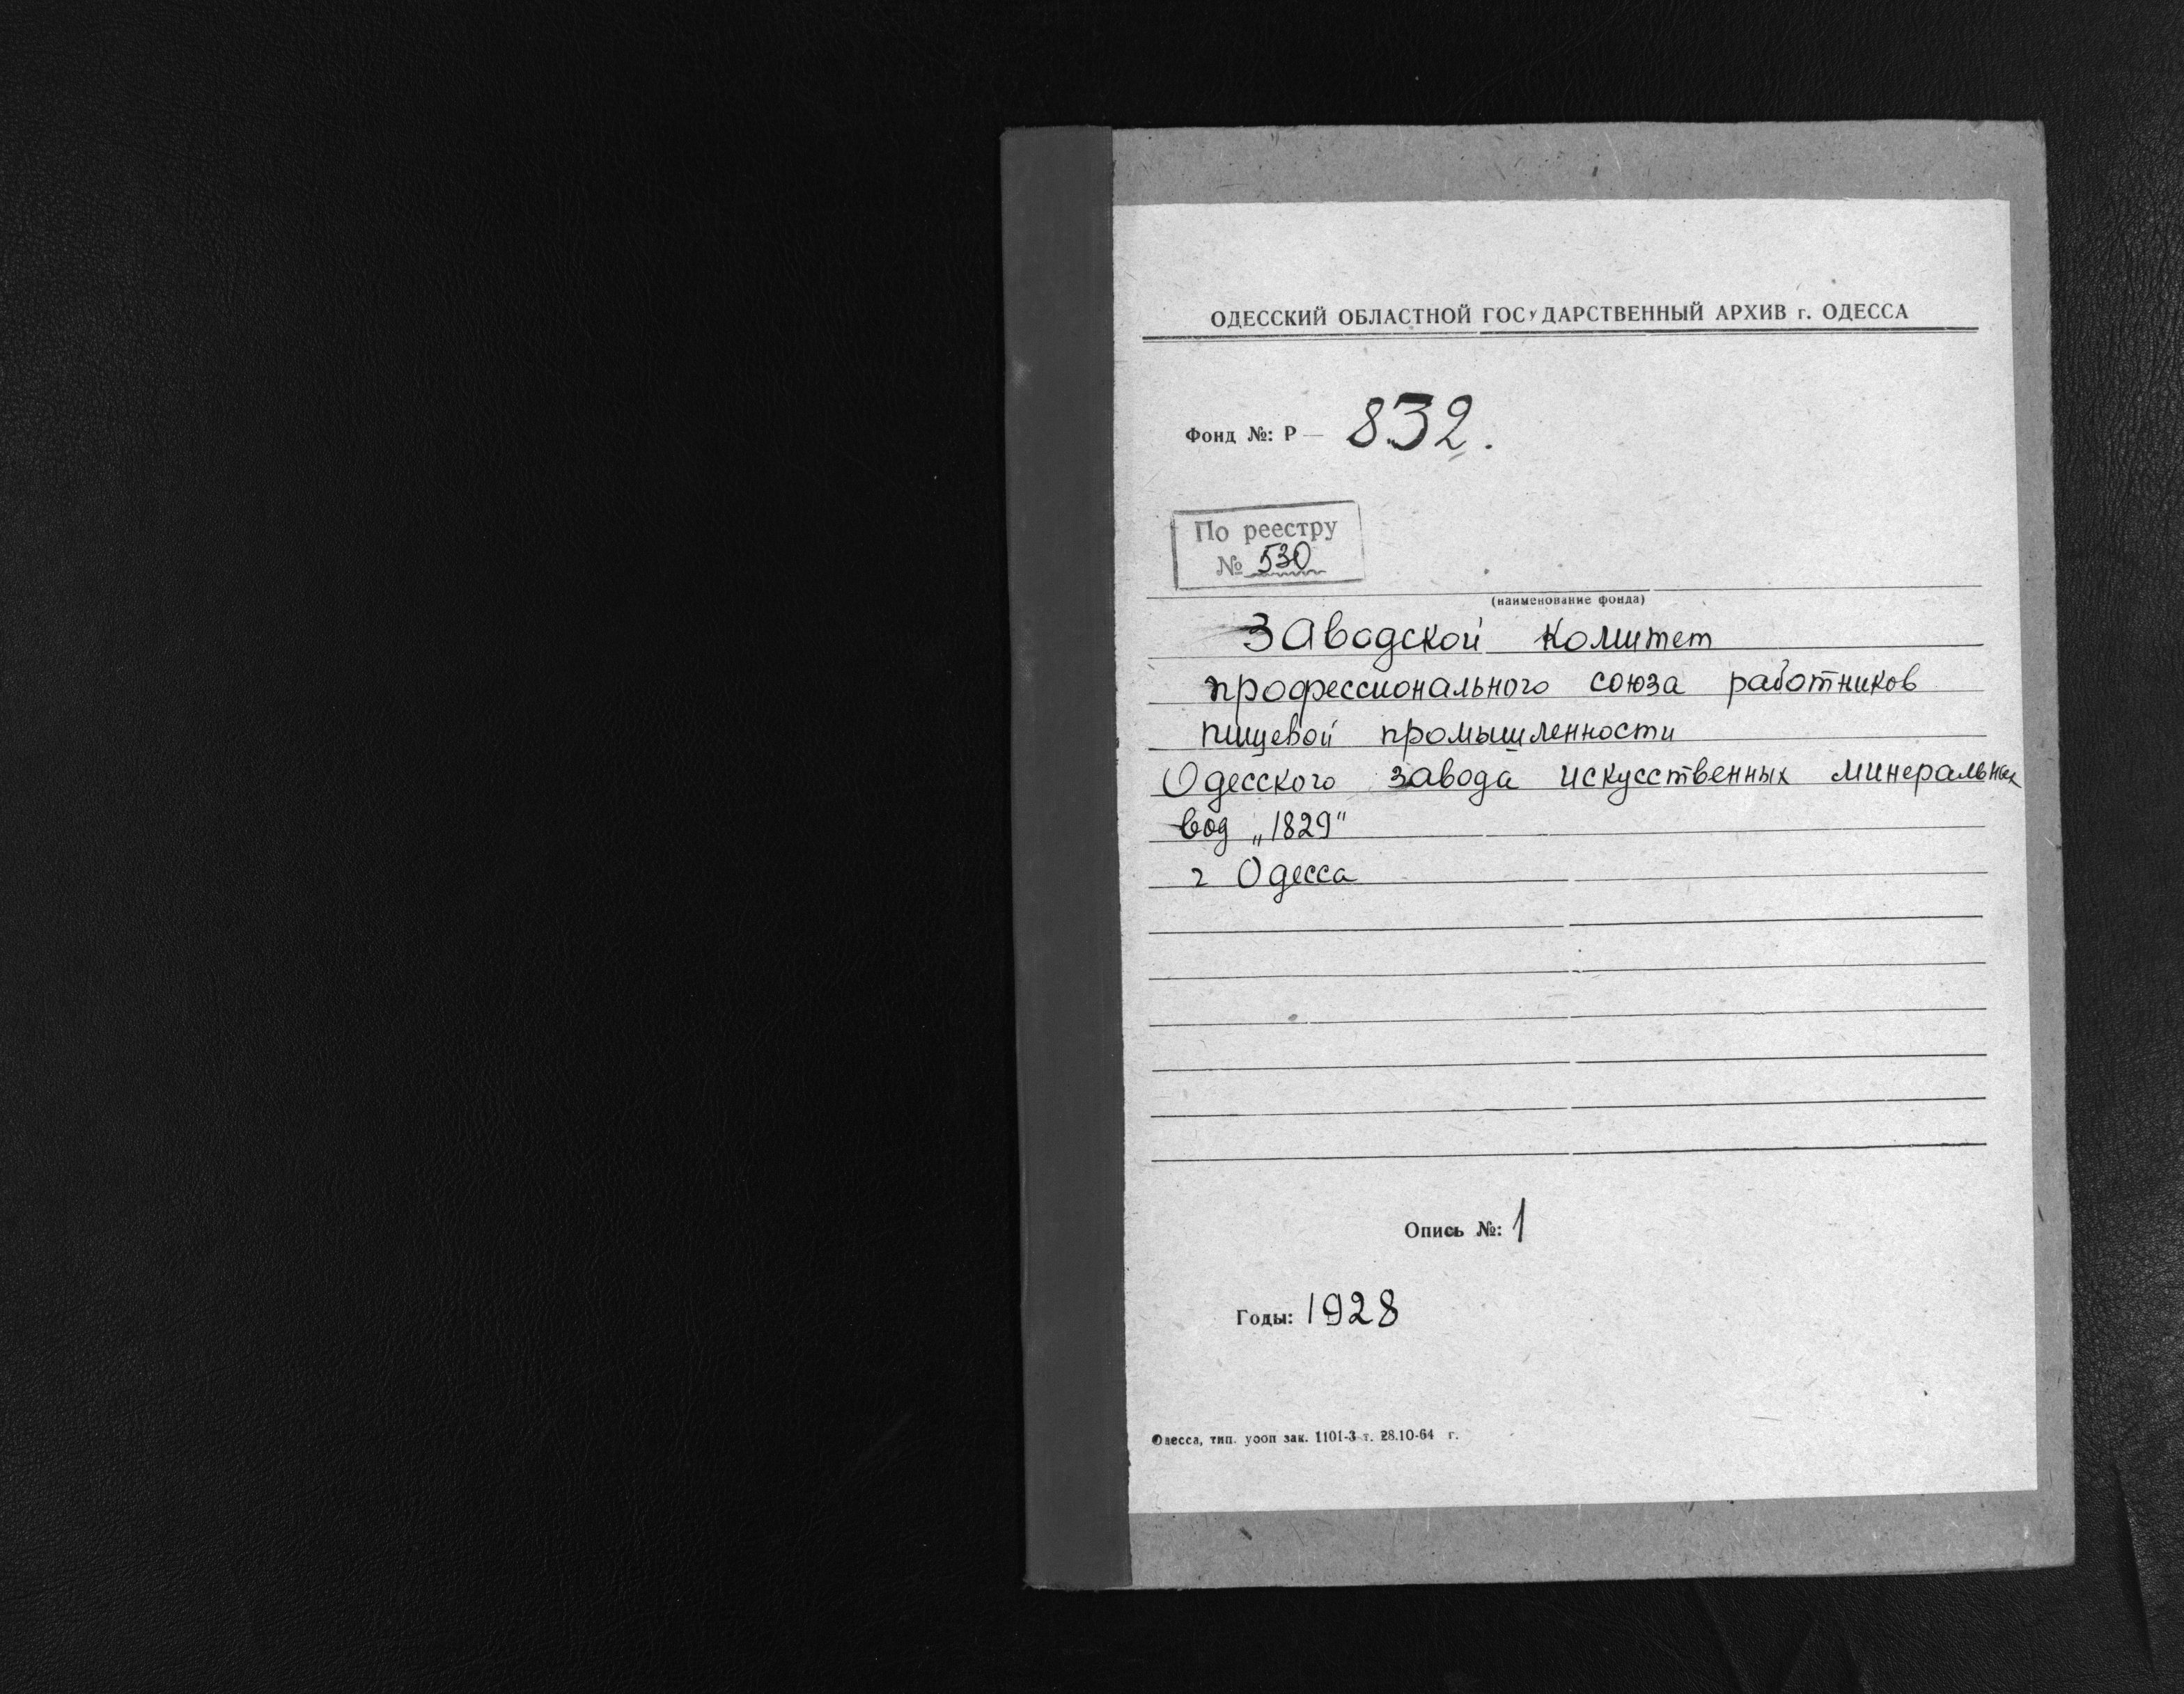 ОДЕССКИЙ ОБЛАСТНОЙ ГОСУДАРСТВЕННЫЙ АРХИВ г. ОДЕССА
Фонд №: Р — 832.
По реестру
№ 530
(наименование фонда)
Заводской комитет
профессионального союза работников
пищевой промышленности
Одесского завода искусственных минеральных
вод „1829"
г Одесса
Опись №: 1
Годы: 1928
Одесса, тип. уооп зак. 1101-3 т. 28.10-64 г.